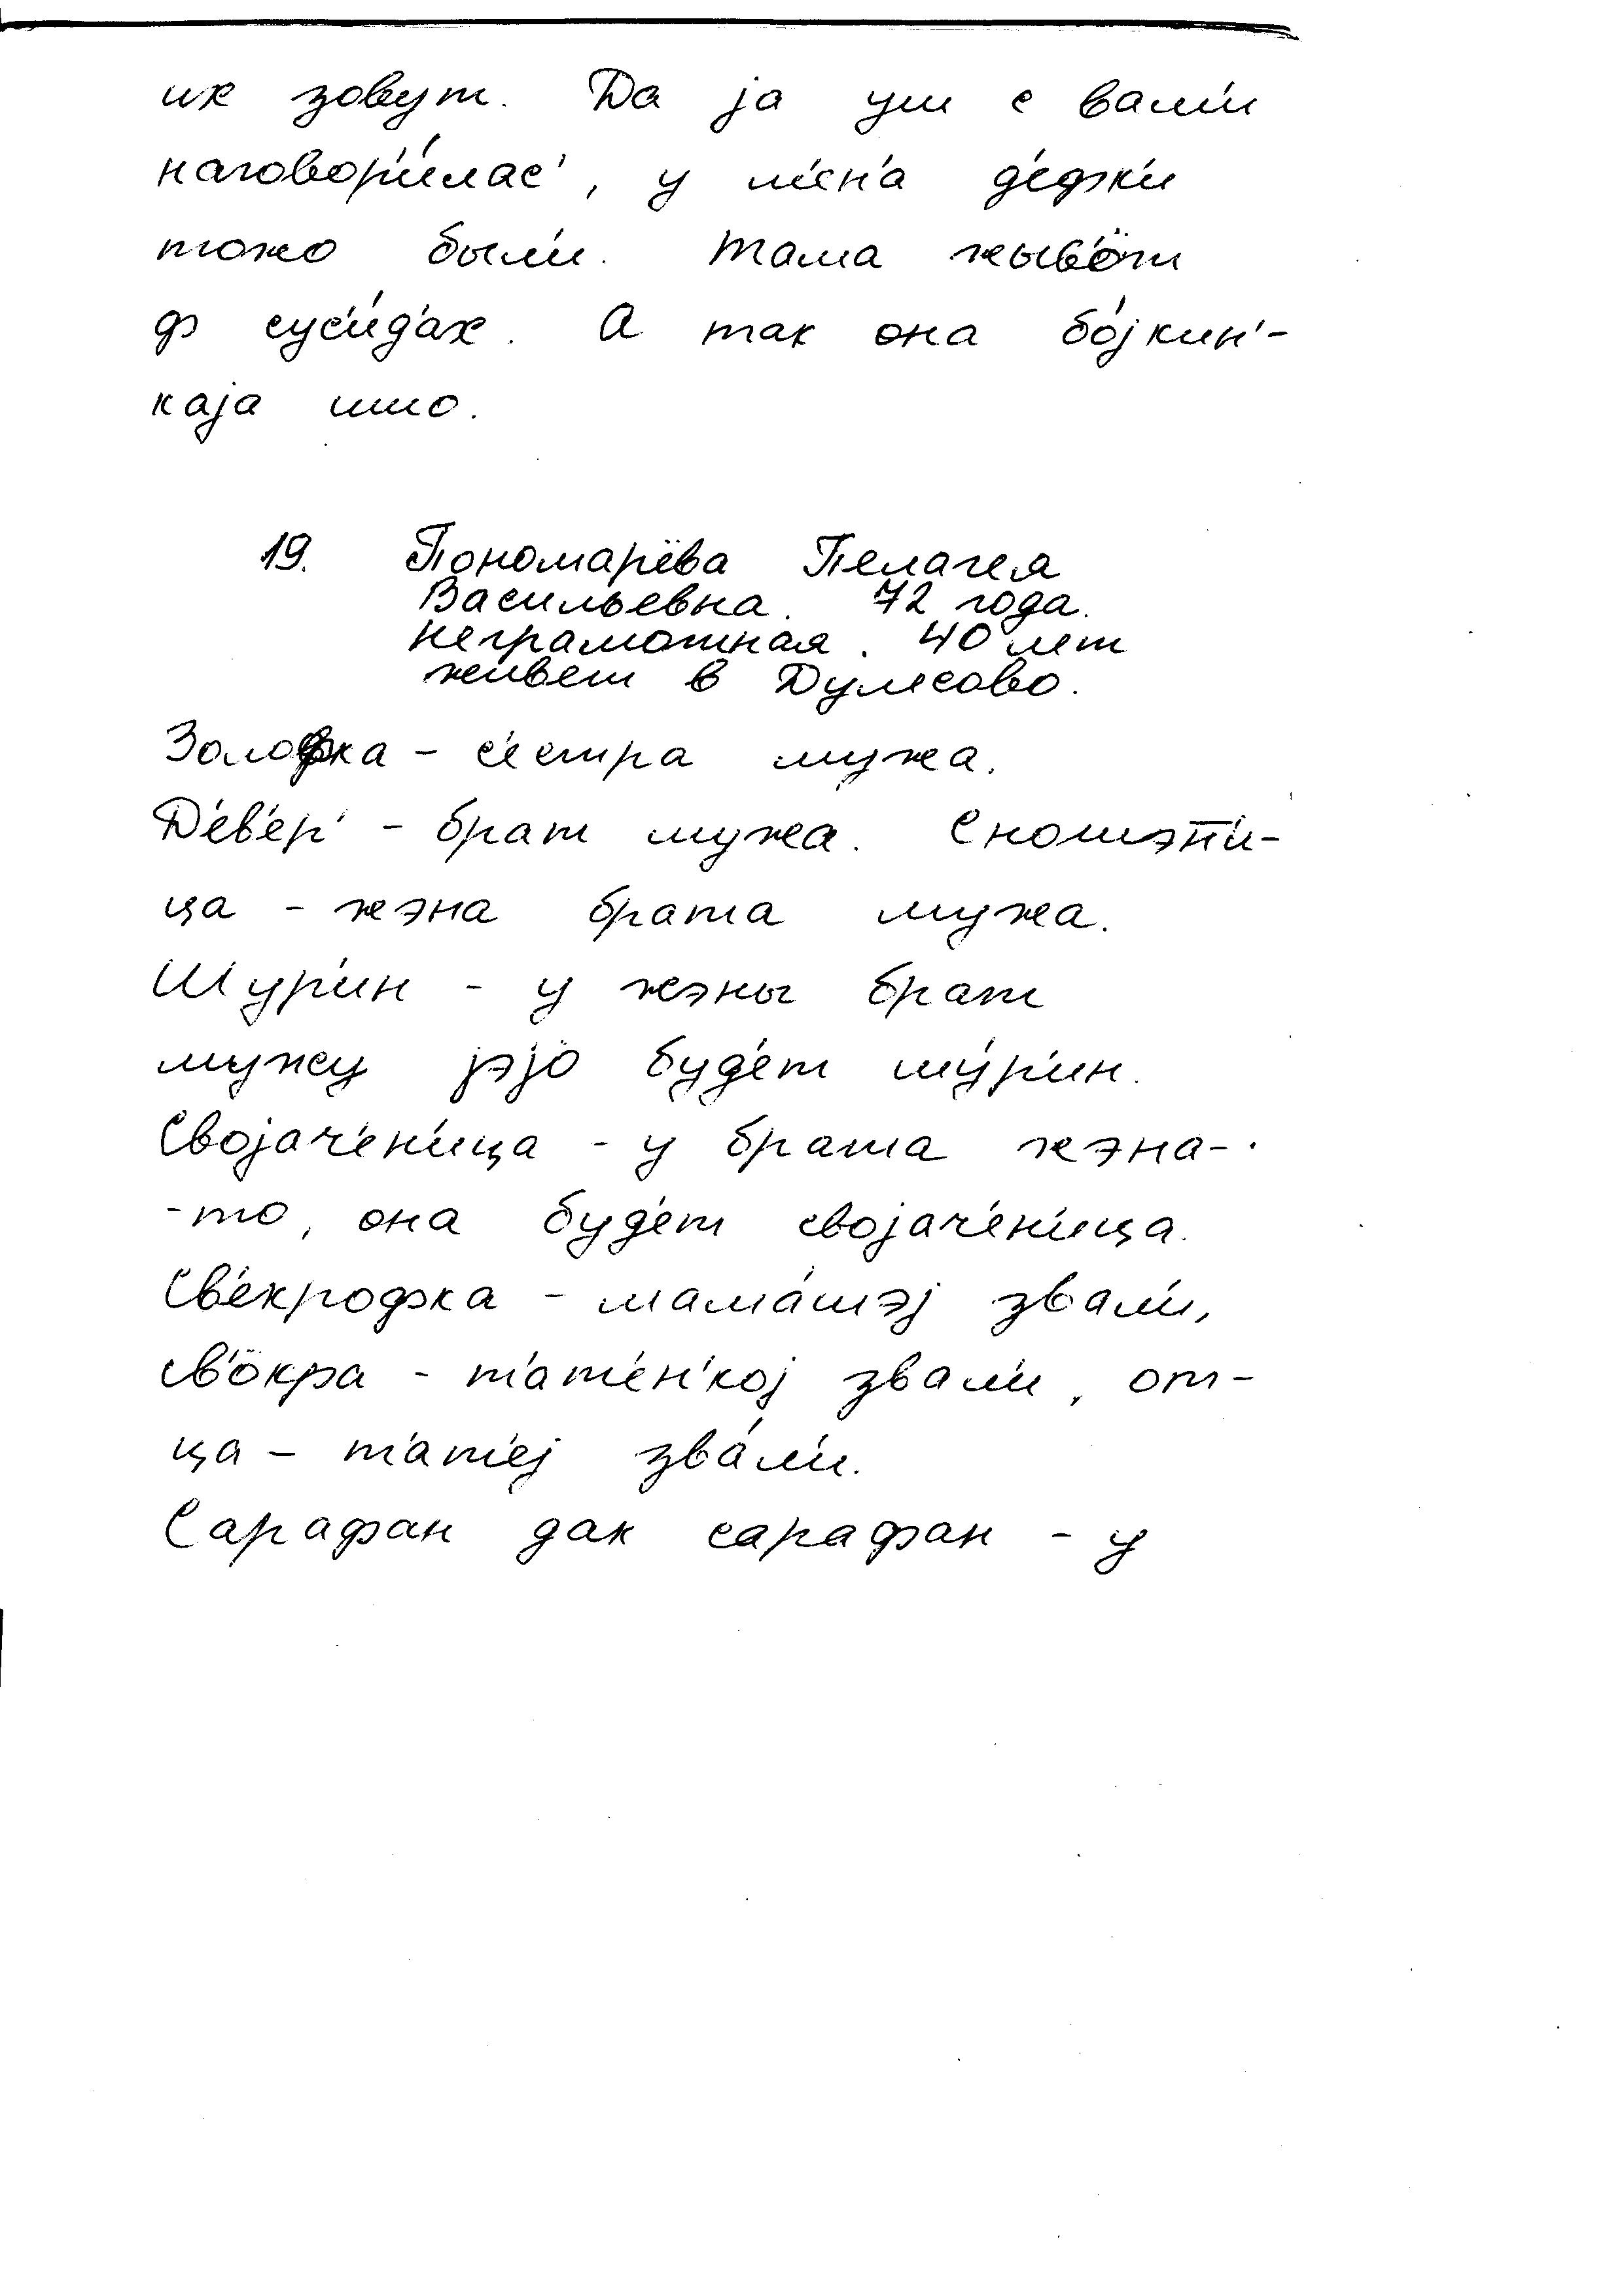 их зовут. Да jа уш с вам'и
наговор'и́лас', у м'ен'а д'ефк'и
тожо был'и. Тама жыв'öт
ф сус'и́д'ах. А так она бо́jкин'-
каjа што.
19. Пономарёва Пелагея
Васильевна. 72 года.
Неграмотная. 40 лет
живет в Дулесово.
Золофка - с'естра мужа.
Д'ев'ер' - брат мужа. Сношэн'и-
ца - жэна брата мужа.
Шур'ин - у жэны брат
мужу jэjö буд'ет шу́р'ин.
Своjач'ен'ица - у брата жэна-
-то, она буд'ет своjач'ен'ица.
Св'екрофка - мама́шэj звал'и,
св'öкра - т'ат'ен'коj звал'и, от-
ца - т'ат'еj зва́л'и.
Сарафан дак сарафан - у